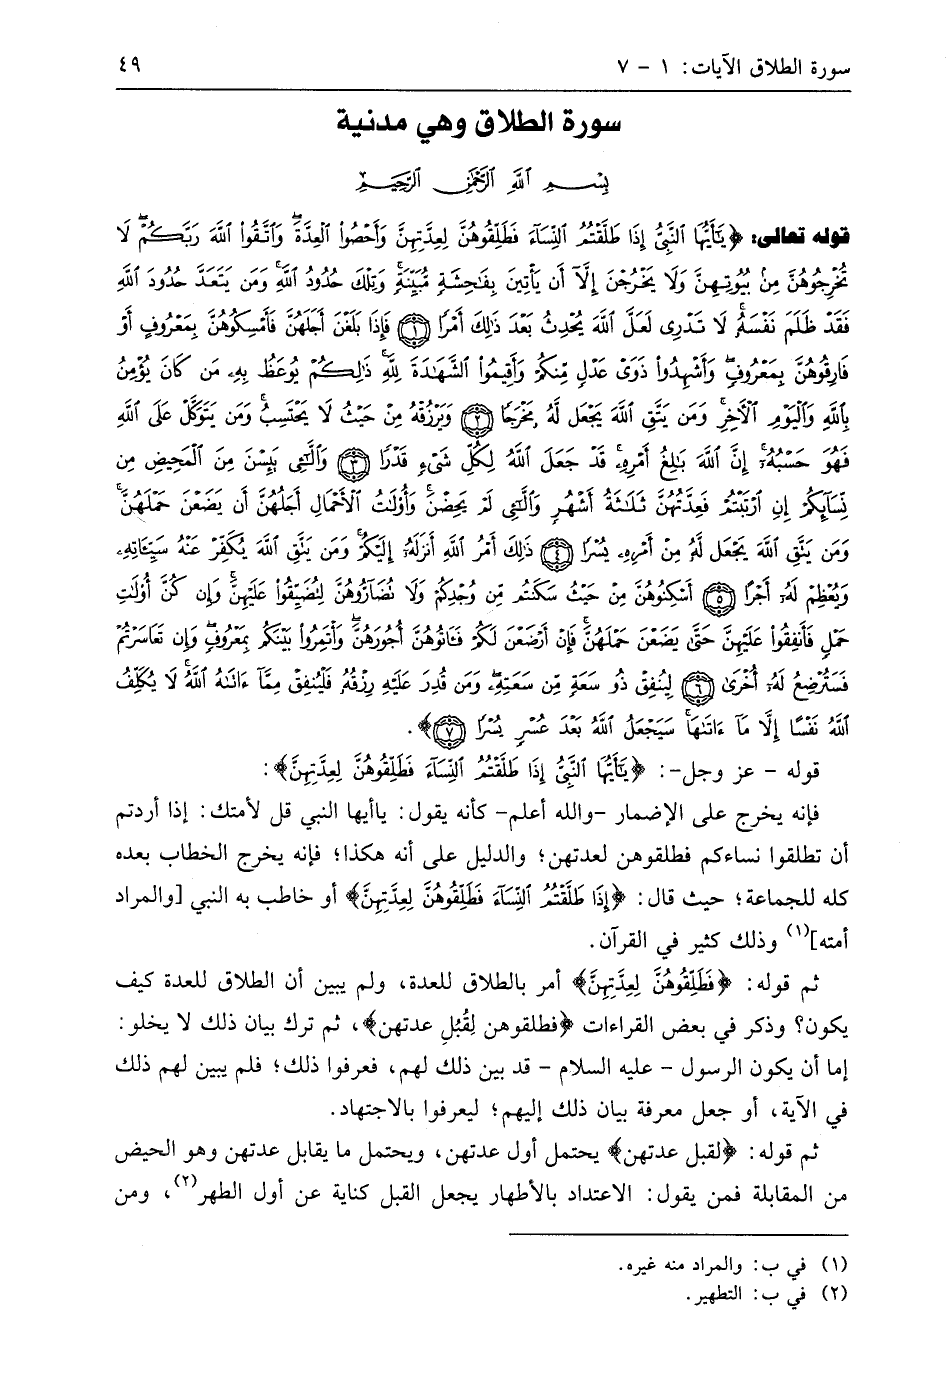 سورة الطلاق الآيات: ١ - ٧ ٤٩
سورة الطلاق وهي مدنية
بِسْمِ اللَّهِ الرَّحْمَٰنِ الرَّحِيمِ
قوله تعالى: ﴿يَٰٓأَيُّهَا ٱلنَّبِىُّ إِذَا طَلَّقْتُمُ ٱلنِّسَآءَ فَطَلِّقُوهُنَّ لِعِدَّتِهِنَّ وَأَحْصُوا۟ ٱلْعِدَّةَۖ وَٱتَّقُوا۟ ٱللَّهَ رَبَّكُمْۖ لَا
تُخْرِجُوهُنَّ مِنۢ بُيُوتِهِنَّ وَلَا يَخْرُجْنَ إِلَّآ أَن يَأْتِينَ بِفَٰحِشَةٍ مُّبَيِّنَةٍۚ وَتِلْكَ حُدُودُ ٱللَّهِۚ وَمَن يَتَعَدَّ حُدُودَ ٱللَّهِ
فَقَدْ ظَلَمَ نَفْسَهُۥۚ لَا تَدْرِى لَعَلَّ ٱللَّهَ يُحْدِثُ بَعْدَ ذَٰلِكَ أَمْرًا ﴿١﴾ فَإِذَا بَلَغْنَ أَجَلَهُنَّ فَأَمْسِكُوهُنَّ بِمَعْرُوفٍ أَوْ
فَارِقُوهُنَّ بِمَعْرُوفٍ وَأَشْهِدُوا۟ ذَوَىْ عَدْلٍ مِّنكُمْ وَأَقِيمُوا۟ ٱلشَّهَٰدَةَ لِلَّهِۚ ذَٰلِكُمْ يُوعَظُ بِهِۦ مَن كَانَ يُؤْمِنُ
بِٱللَّهِ وَٱلْيَوْمِ ٱلْءَاخِرِۚ وَمَن يَتَّقِ ٱللَّهَ يَجْعَل لَّهُۥ مَخْرَجًا ﴿٢﴾ وَيَرْزُقْهُ مِنْ حَيْثُ لَا يَحْتَسِبُۚ وَمَن يَتَوَكَّلْ عَلَى ٱللَّهِ
فَهُوَ حَسْبُهُۥٓۚ إِنَّ ٱللَّهَ بَٰلِغُ أَمْرِهِۦۚ قَدْ جَعَلَ ٱللَّهُ لِكُلِّ شَىْءٍ قَدْرًا ﴿٣﴾ وَٱلَّٰٓـِٔى يَئِسْنَ مِنَ ٱلْمَحِيضِ مِن
نِّسَآئِكُمْ إِنِ ٱرْتَبْتُمْ فَعِدَّتُهُنَّ ثَلَٰثَةُ أَشْهُرٍ وَٱلَّٰٓـِٔى لَمْ يَحِضْنَۚ وَأُو۟لَٰتُ ٱلْأَحْمَالِ أَجَلُهُنَّ أَن يَضَعْنَ حَمْلَهُنَّۚ
وَمَن يَتَّقِ ٱللَّهَ يَجْعَل لَّهُۥ مِنْ أَمْرِهِۦ يُسْرًا ﴿٤﴾ ذَٰلِكَ أَمْرُ ٱللَّهِ أَنزَلَهُۥٓ إِلَيْكُمْۚ وَمَن يَتَّقِ ٱللَّهَ يُكَفِّرْ عَنْهُ سَيِّـَٔاتِهِۦ
وَيُعْظِمْ لَهُۥٓ أَجْرًا ﴿٥﴾ أَسْكِنُوهُنَّ مِنْ حَيْثُ سَكَنتُم مِّن وُجْدِكُمْ وَلَا تُضَآرُّوهُنَّ لِتُضَيِّقُوا۟ عَلَيْهِنَّۚ وَإِن كُنَّ أُو۟لَٰتِ
حَمْلٍ فَأَنفِقُوا۟ عَلَيْهِنَّ حَتَّىٰ يَضَعْنَ حَمْلَهُنَّۚ فَإِنْ أَرْضَعْنَ لَكُمْ فَـَٔاتُوهُنَّ أُجُورَهُنَّۖ وَأْتَمِرُوا۟ بَيْنَكُم بِمَعْرُوفٍۖ وَإِن تَعَاسَرْتُمْ
فَسَتُرْضِعُ لَهُۥٓ أُخْرَىٰ ﴿٦﴾ لِيُنفِقْ ذُو سَعَةٍ مِّن سَعَتِهِۦۖ وَمَن قُدِرَ عَلَيْهِ رِزْقُهُۥ فَلْيُنفِقْ مِمَّآ ءَاتَىٰهُ ٱللَّهُۚ لَا يُكَلِّفُ
ٱللَّهُ نَفْسًا إِلَّا مَآ ءَاتَىٰهَاۚ سَيَجْعَلُ ٱللَّهُ بَعْدَ عُسْرٍ يُسْرًا ﴿٧﴾﴾.
قوله - عز وجل-: ﴿يَٰٓأَيُّهَا ٱلنَّبِىُّ إِذَا طَلَّقْتُمُ ٱلنِّسَآءَ فَطَلِّقُوهُنَّ لِعِدَّتِهِنَّ﴾:
فإنه يخرج على الإضمار -والله أعلم- كأنه يقول: ياأيها النبي قل لأمتك: إذا أردتم
أن تطلقوا نساءكم فطلقوهن لعدتهن؛ والدليل على أنه هكذا؛ فإنه يخرج الخطاب بعده
كله للجماعة؛ حيث قال: ﴿إِذَا طَلَّقْتُمُ ٱلنِّسَآءَ فَطَلِّقُوهُنَّ لِعِدَّتِهِنَّ﴾ أو خاطب به النبي [والمراد
أمته](١) وذلك كثير في القرآن.
ثم قوله: ﴿فَطَلِّقُوهُنَّ لِعِدَّتِهِنَّ﴾ أمر بالطلاق للعدة، ولم يبين أن الطلاق للعدة كيف
يكون؟ وذكر في بعض القراءات ﴿فطلقوهن لِقُبُلِ عدتهن﴾، ثم ترك بيان ذلك لا يخلو:
إما أن يكون الرسول - عليه السلام - قد بين ذلك لهم، فعرفوا ذلك؛ فلم يبين لهم ذلك
في الآية، أو جعل معرفة بيان ذلك إليهم؛ ليعرفوا بالاجتهاد.
ثم قوله: ﴿لقبل عدتهن﴾ يحتمل أول عدتهن، ويحتمل ما يقابل عدتهن وهو الحيض
من المقابلة فمن يقول: الاعتداد بالأطهار يجعل القبل كناية عن أول الطهر(٢)، ومن
(١) في ب: والمراد منه غيره.
(٢) في ب: التطهير.